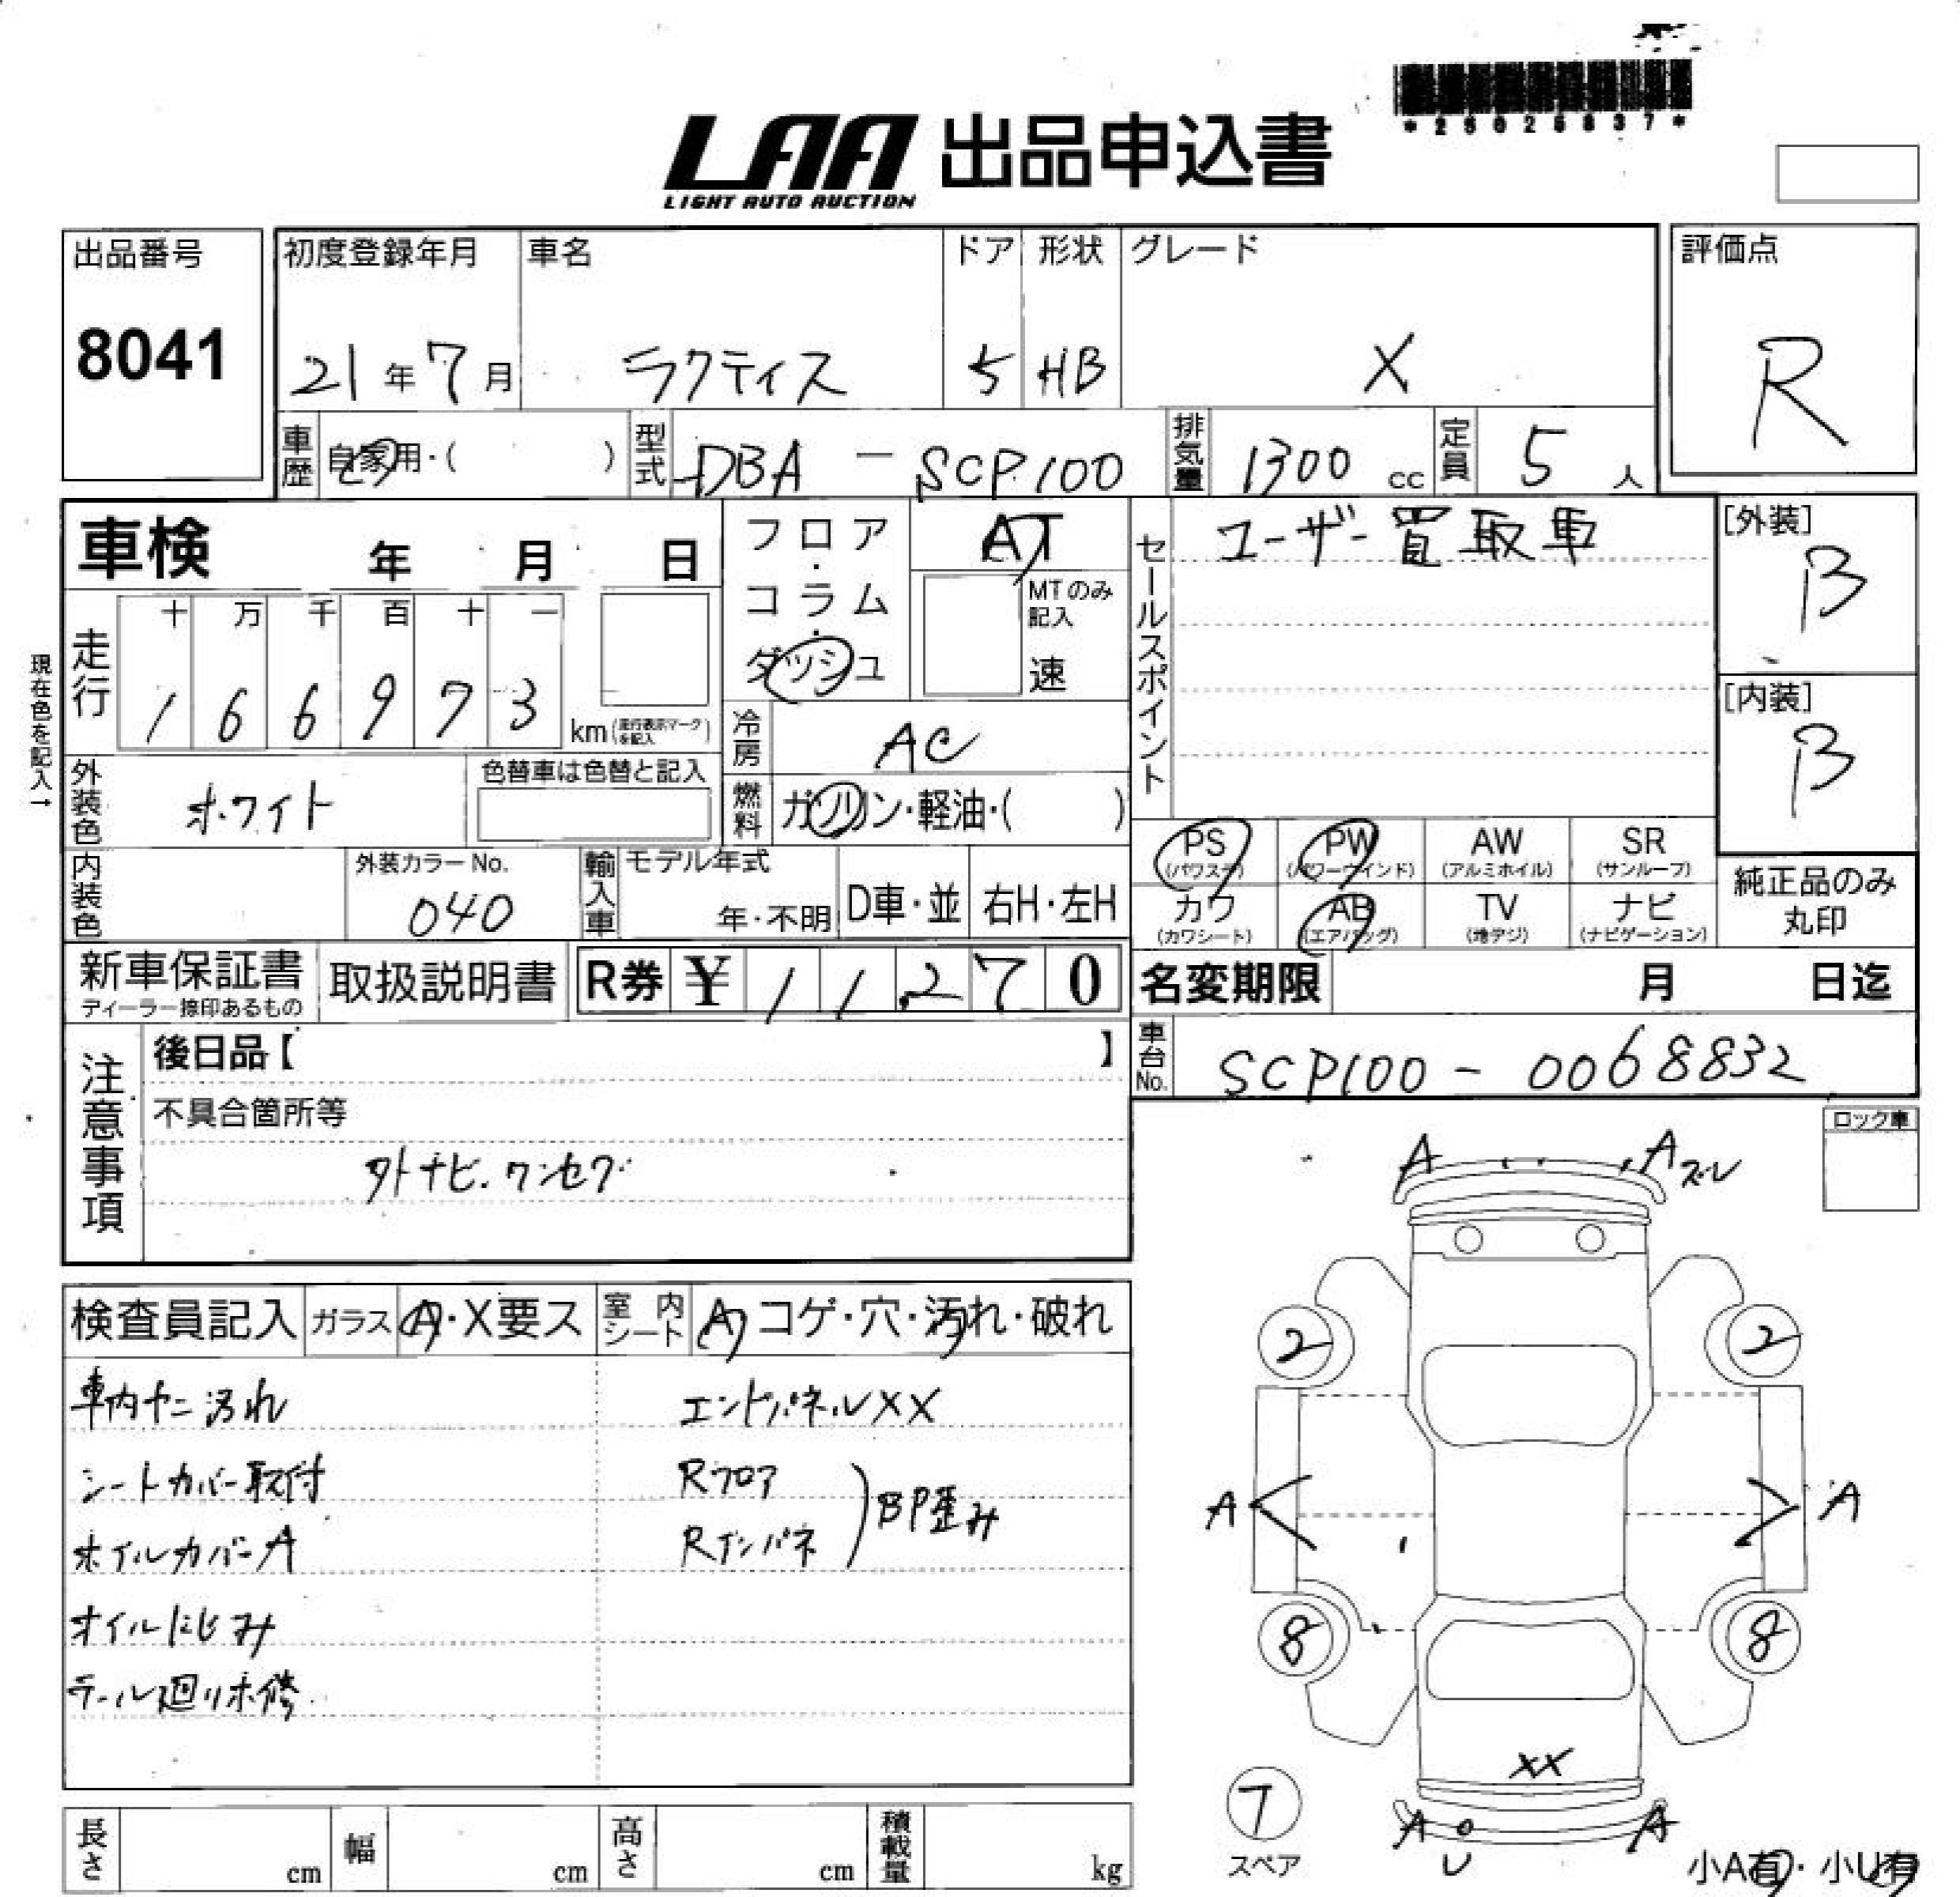 *25026837*
LAA 出品申込書
LIGHT AUTO AUCTION
出品番号
8041
初度登録年月
21年7月
車名
ラクティス
ドア
5
形状
HB
グレード
X
評価点
R
車歴
自家用・( )
型式
DBA - SCP100
排気量
1300 cc
定員
5 人
車検 年 月 日
フロア・コラム・ダッシュ
AT
MTのみ記入
速
セールスポイント
ユーザー買取車
[外装]
B
[内装]
B
現在色を記入→
走行
十 万 千 百 十 一
1 6 6 9 7 3
km (走行表示マークを記入)
冷房
AC
外装色
ホワイト
色替車は色替と記入
燃料
ガソリン・軽油・( )
PS (パワステ)
PW (パワーウインド)
AW (アルミホイル)
SR (サンルーフ)
カワ (カワシート)
AB (エアバッグ)
TV (地デジ)
ナビ (ナビゲーション)
純正品のみ丸印
内装色
外装カラーNo.
040
輸入車
モデル年式
年・不明
D車・並
右H・左H
新車保証書
ディーラー捺印あるもの
取扱説明書
R券 ¥ 11,270
名変期限 月 日迄
車台No.
SCP100 - 0068832
注意事項
後日品【 】
不具合箇所等
外ナビ.ワンセグ
ロック車
検査員記入
ガラス
A・X要ス
室内シート
A コゲ・穴・汚れ・破れ
車内ヤニ汚れ
シートカバー取付
ホイルカバーA
オイルにじみ
テール廻り木修
エンドパネルXX
Rフロア
Rインパネ
BP歪み
A
A ズレ
2
2
A
A
8
8
XX
7
スペア
A
U
A
小A有・小U有
長さ cm
幅 cm
高さ cm
積載量 kg